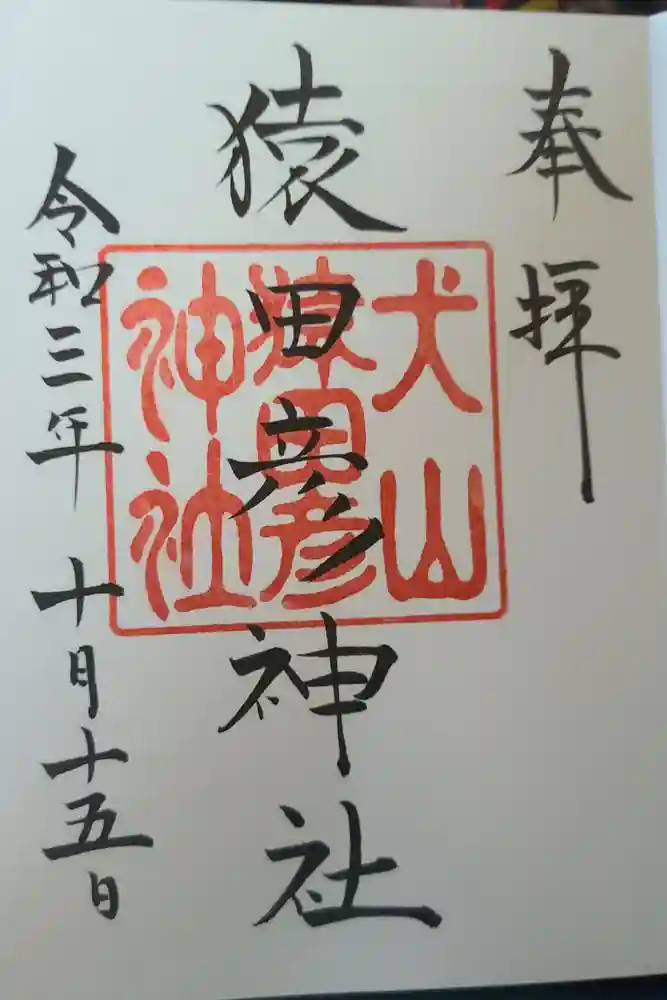 奉拝
猿田彦神社
犬山
猿田彦
神社
令和三年 十月十五日